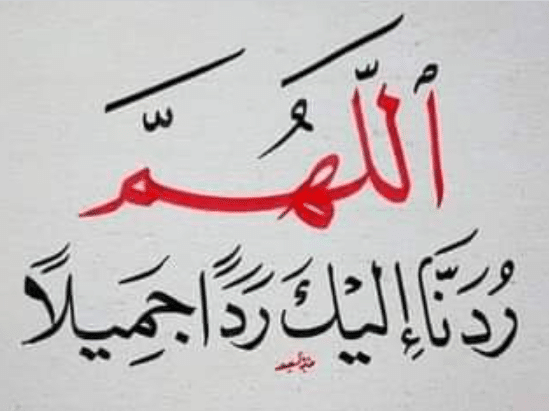 ٱللَّهُمَّ
رُدَنَّا إِليْكَ رَدًَا جَمِيلاً